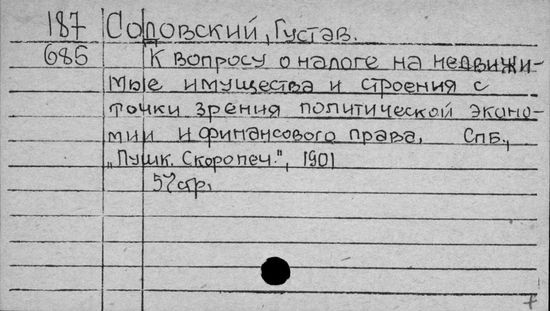 187 Солловский, Густав.
685 К вопросу о налоге на недвижи-
мые имущества и строения с
точки зрения политической эконо-
мии и финансового права. Спб.,
„Пушк. Скоропеч.", 1901
57 стр.